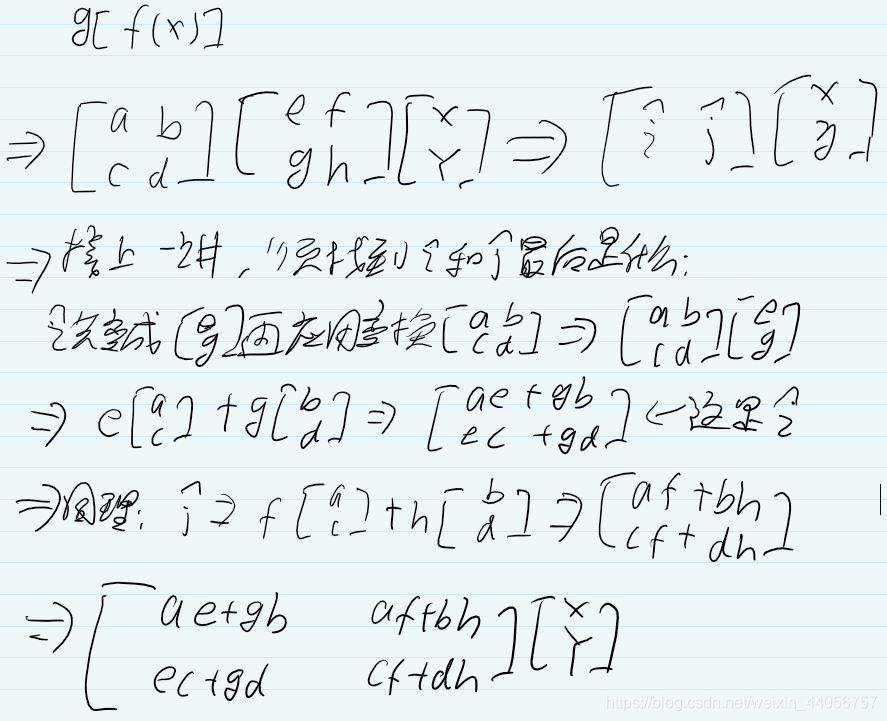 g[f(x)]
⇒ [a b; c d] [e f; g h] [x; Y] ⇒ [î ĵ] [x; y]
⇒ 接上一讲，只须找到 î 和 ĵ 最后是什么：
î 先变成 [e; g] 再应用变换 [a b; c d] ⇒ [a b; c d] [e; g]
⇒ e[a; c] + g[b; d] ⇒ [ae + gb; ec + gd] ← 这是 î
⇒ 同理： ĵ ⇒ f[a; c] + h[b; d] ⇒ [af + bh; cf + dh]
⇒ [ae+gb af+bh; ec+gd cf+dh] [x; Y]
https://blog.csdn.net/weixin_44056757